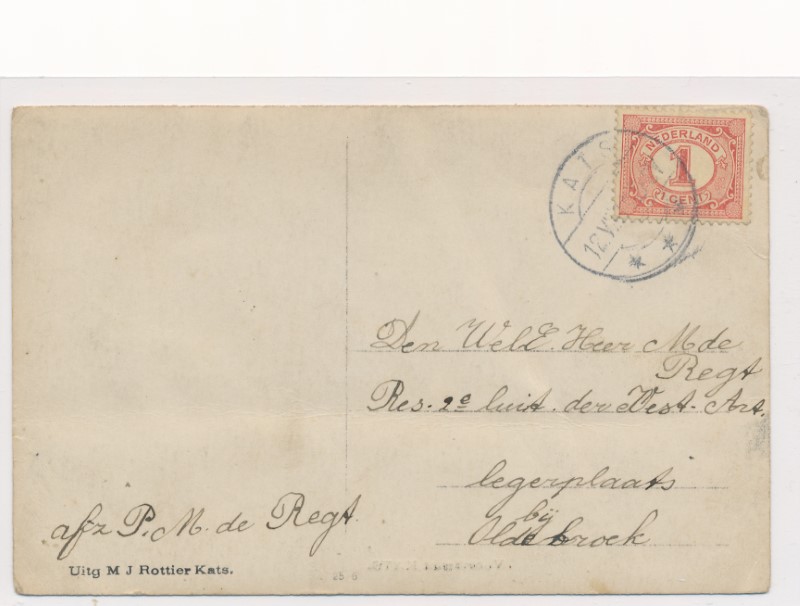 NEDERLAND
1
1 CENT
KATS
12.V
Den WelE. Heer M de
Regt
Res. 2e luit. der Vest. Art.
legerplaats
bij
Oldebroek
afz P. M. de Regt.
Uitg M J Rottier Kats.
25-6